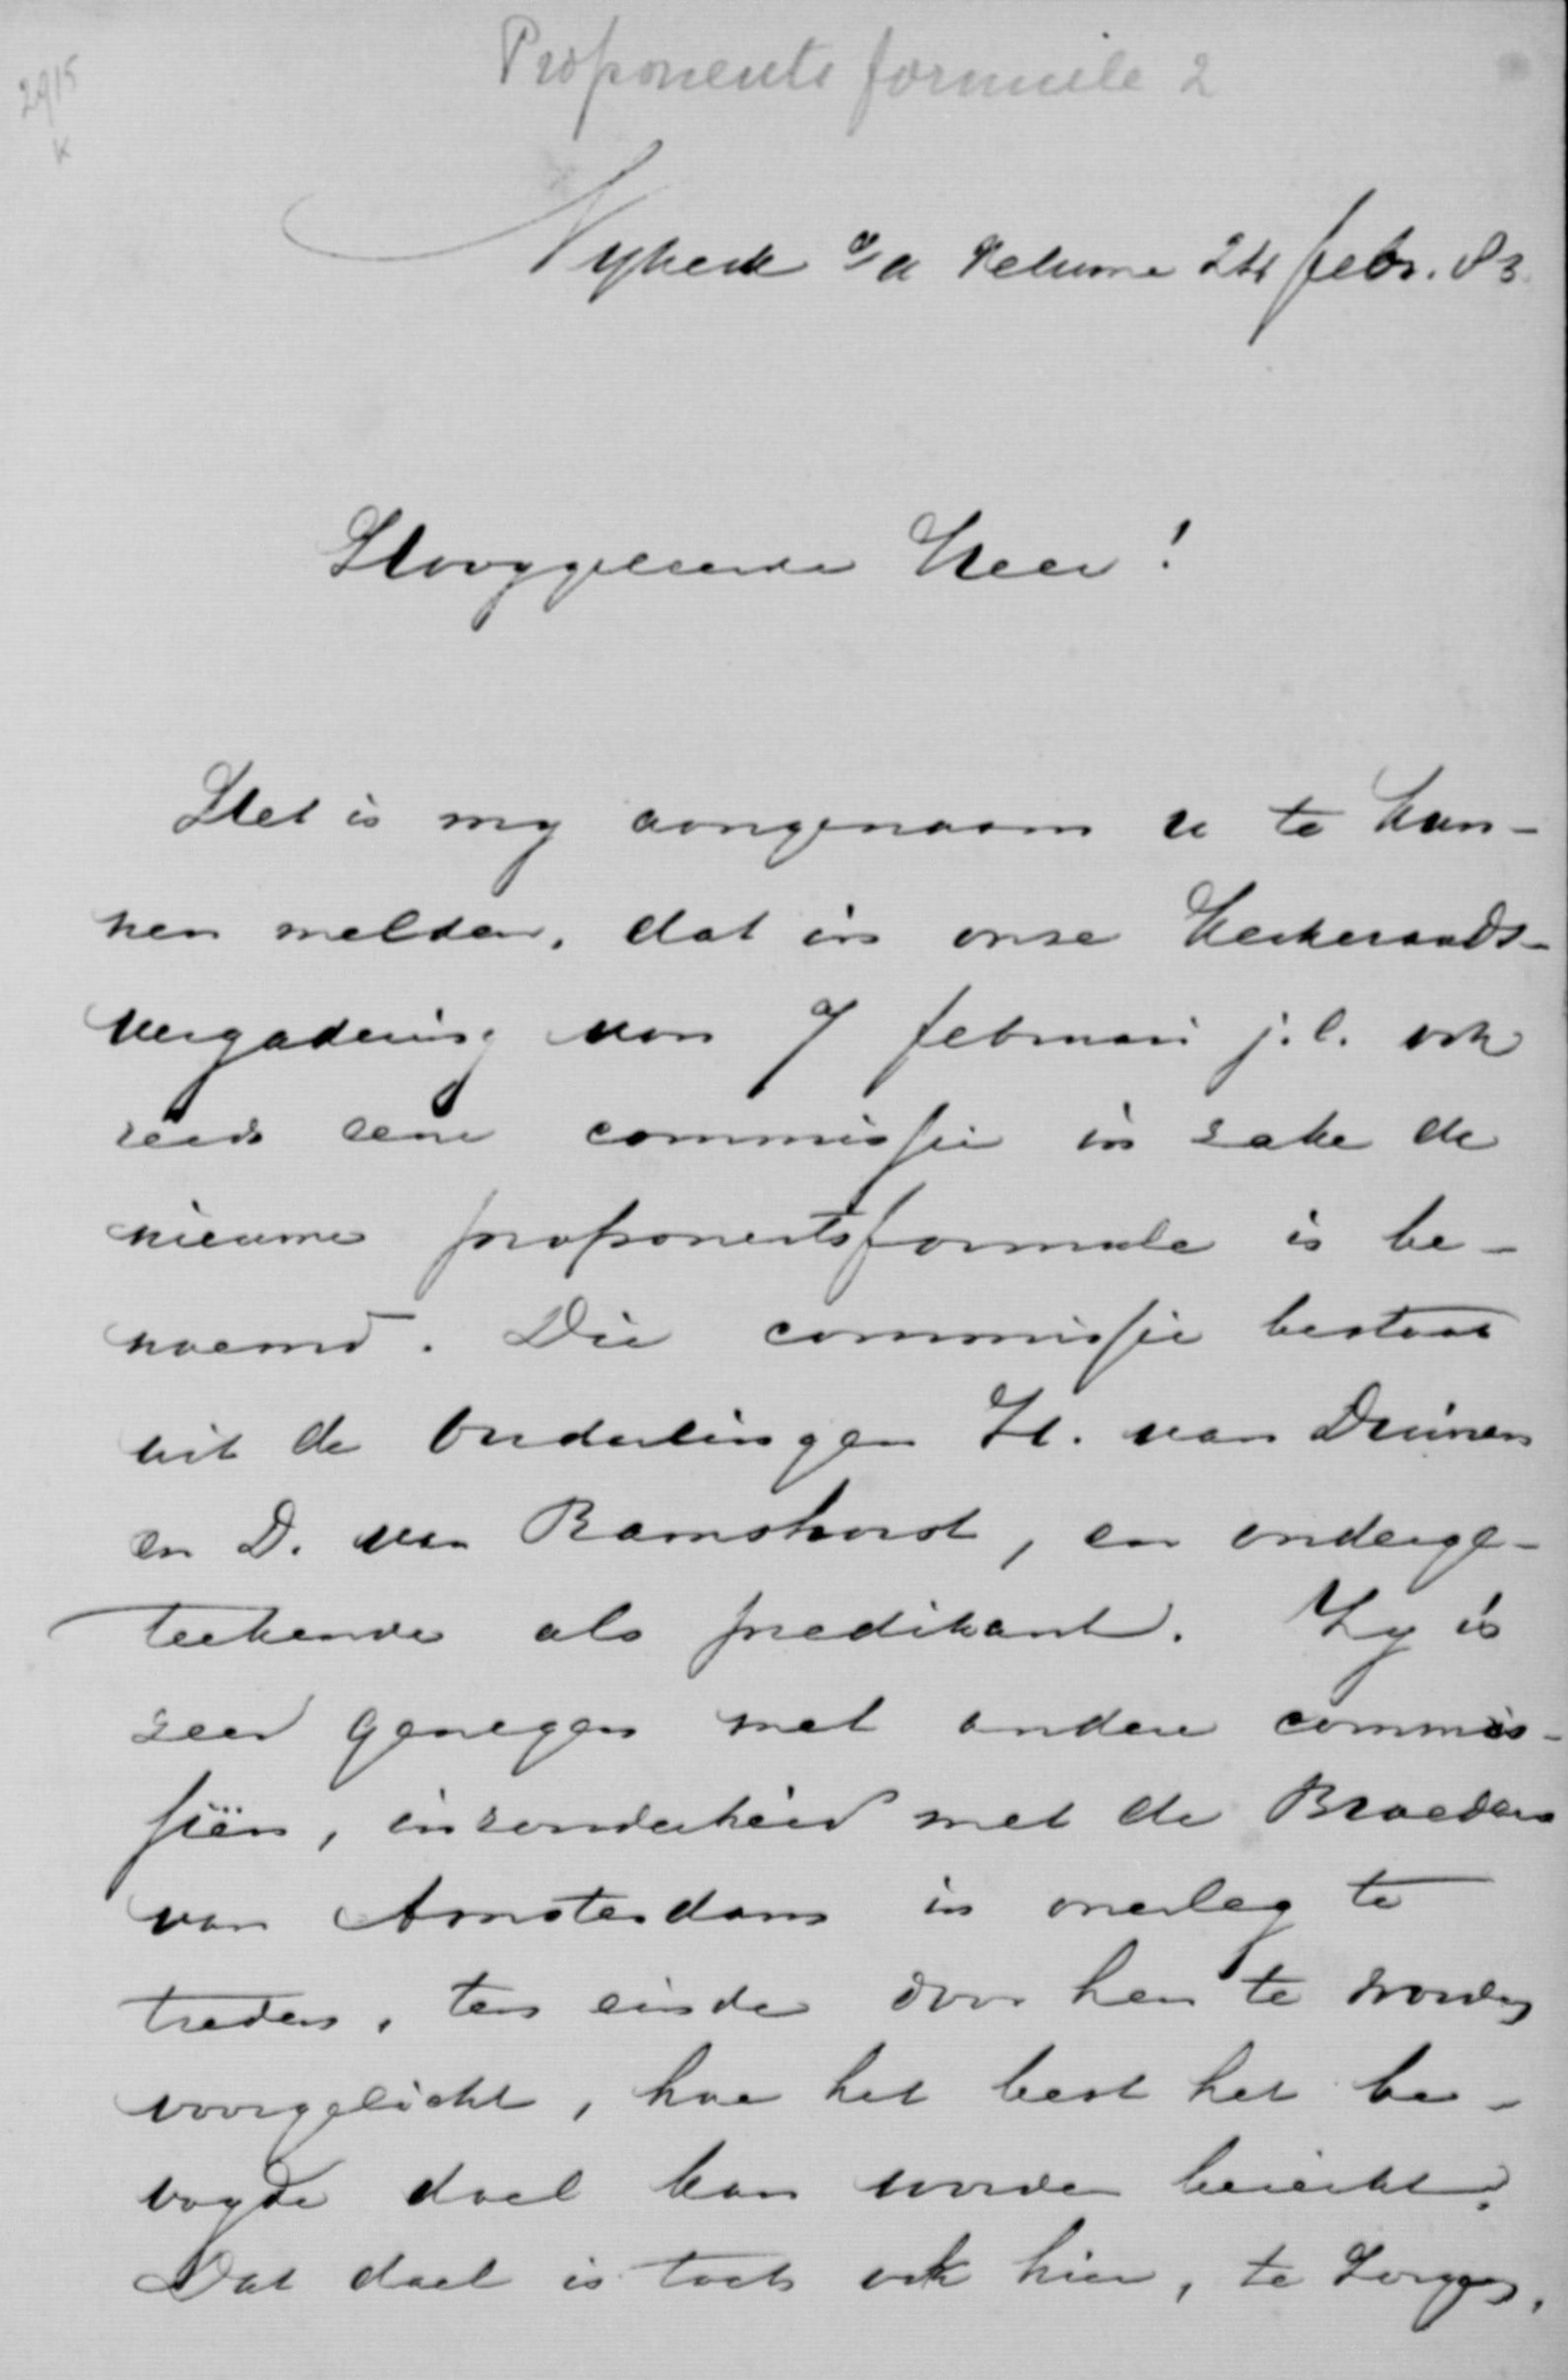 Proponentsformule 2
2915
K
Nykerk o/d Veluwe 24 febr. 83
Hooggeleerde Heer!
Het is my aangenaam u te kun-
nen melden, dat in onze Kerkeraads-
vergadering van 7 februari j.l. ook
reeds eene commissie in zake de
nieuwe proponentsformule is be-
noemd. Die commissie bestaat
uit de ouderlingen H. van Druinen
en D. van Ramshorst, en onderge-
teekende als predikant. Zy is
zeer genegen met andere commis-
siën, inzonderheid met de Broeders
van Amsterdam in overleg te
treden, ten einde door hen te worden
voorgelicht, hoe het best het be-
oogde doel kan worden bereikt.
Dat doel is toch ook hier, te zorgen,